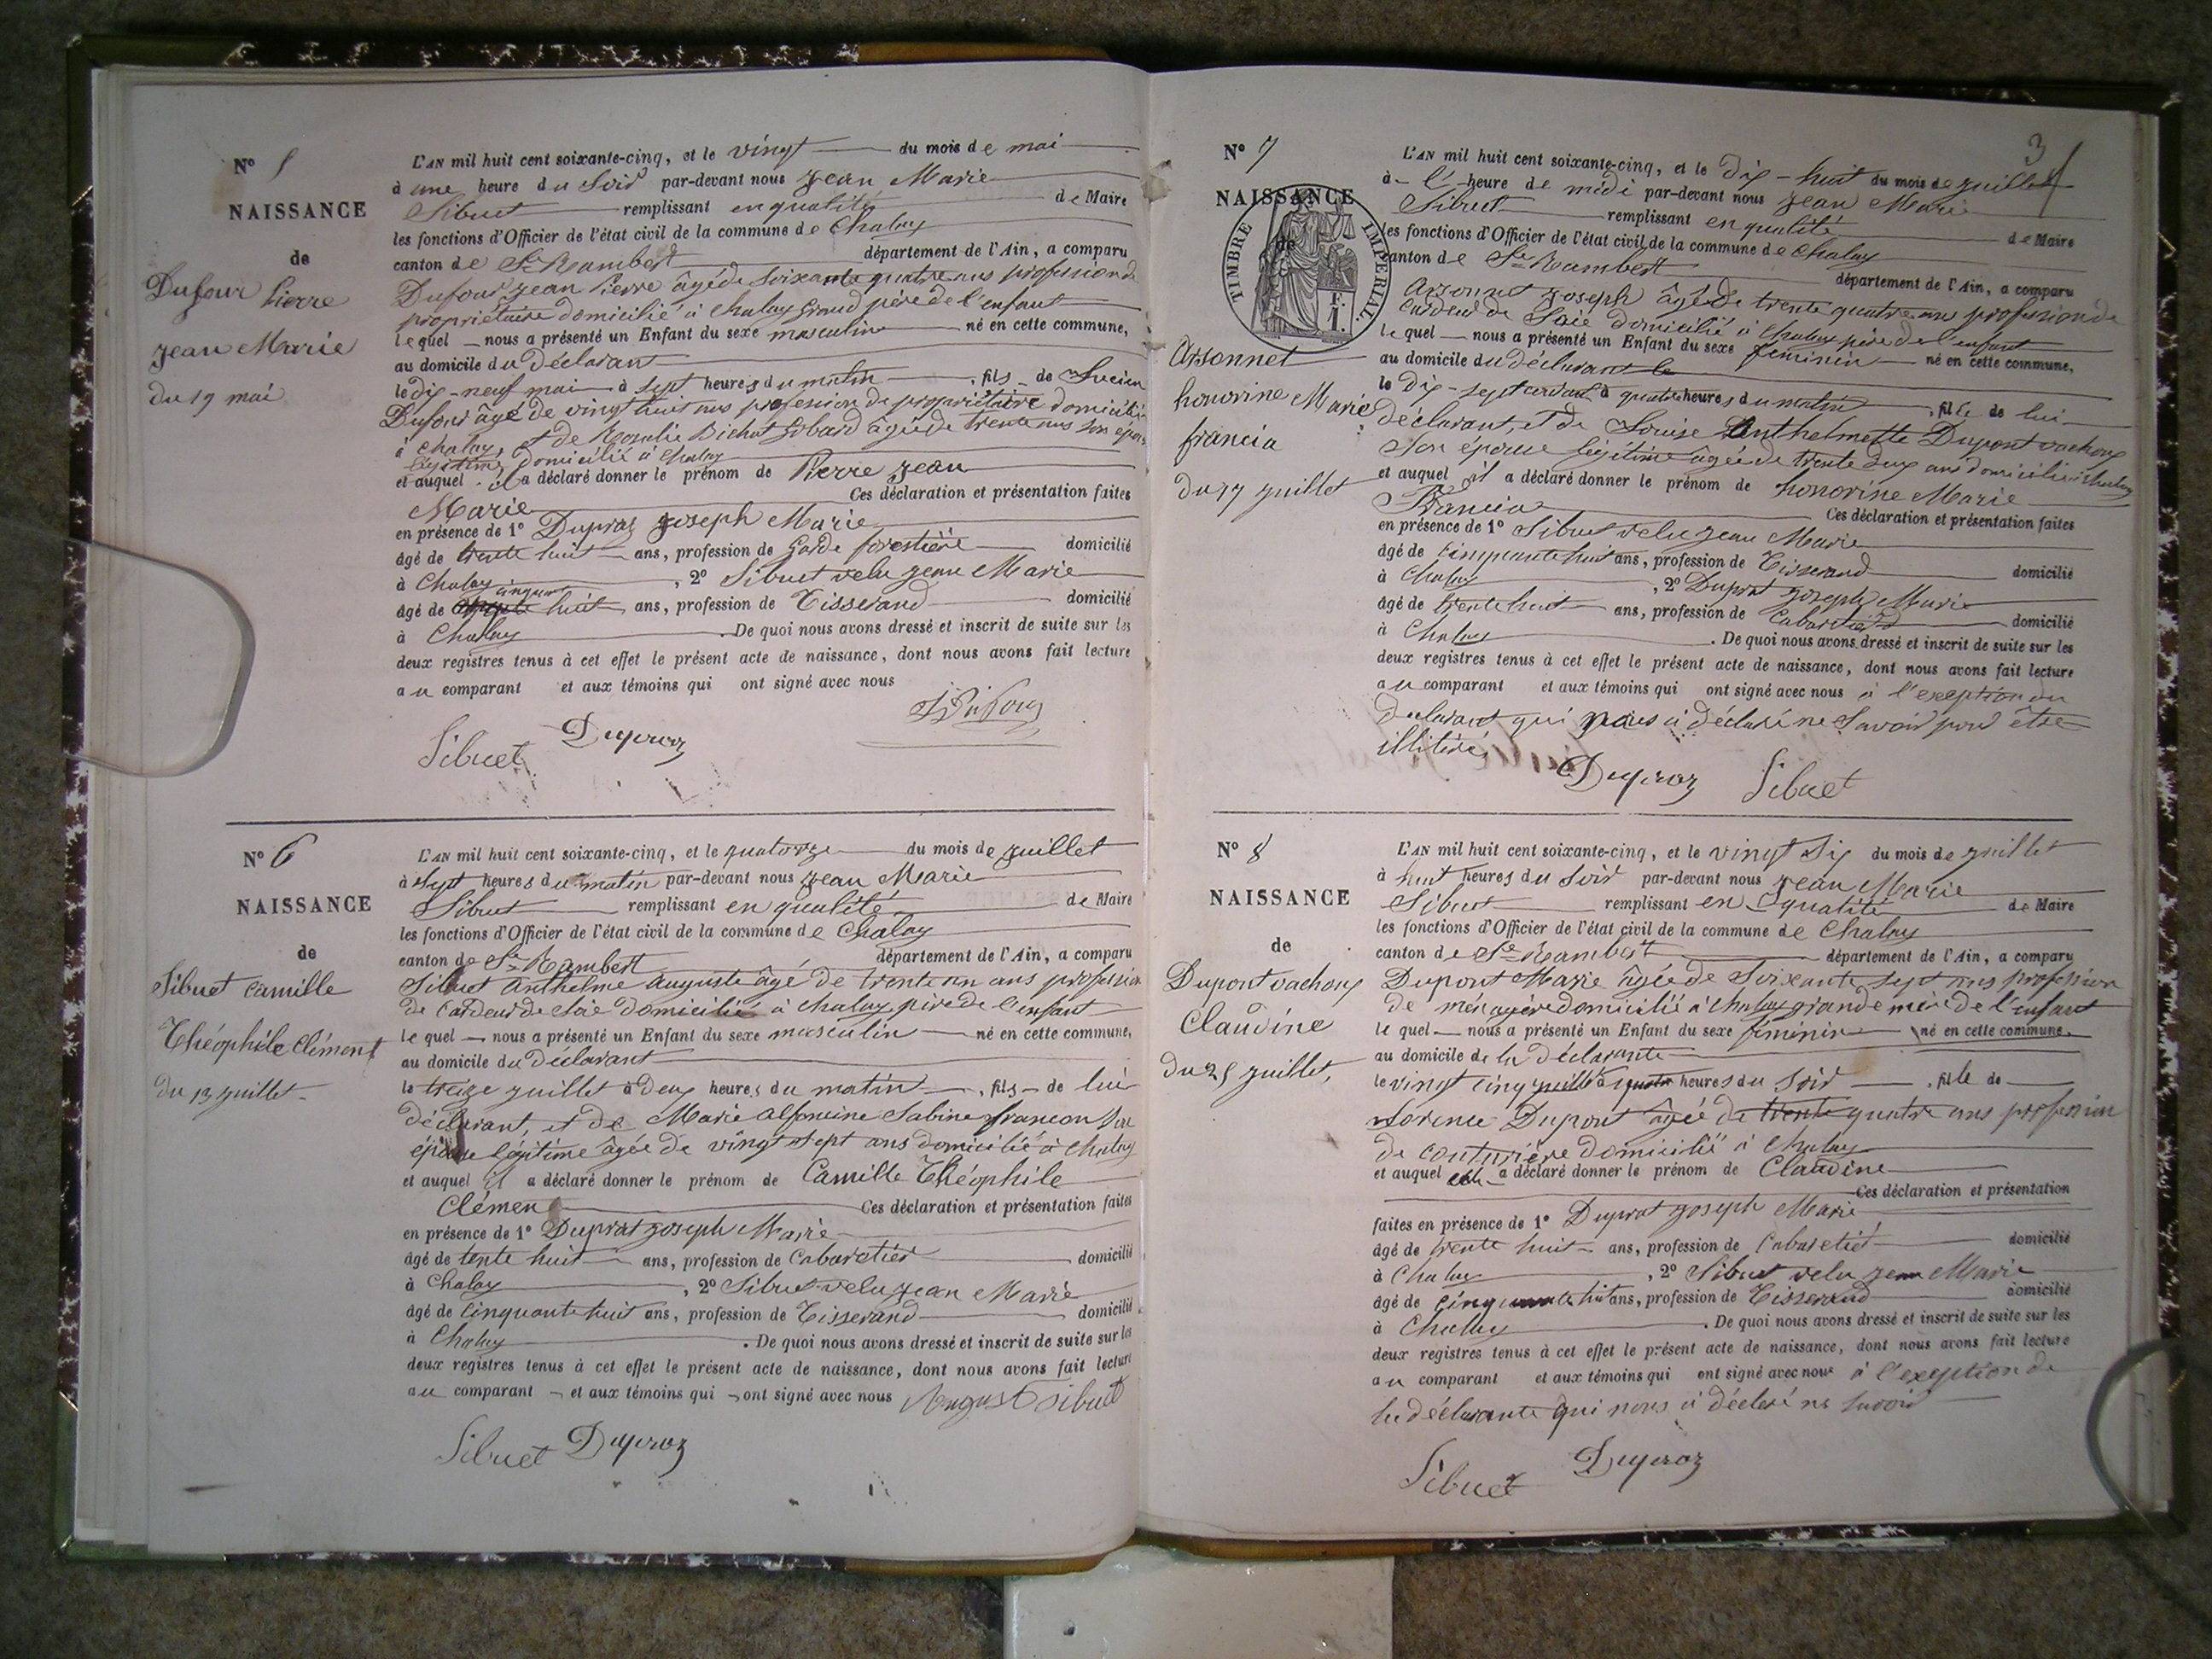 N° 5
NAISSANCE
de
Dufour Pierre
Jean Marie
du 19 mai
L'AN mil huit cent soixante-cinq, et le vingt du mois de mai
à une heure du Soir par-devant nous Jean Marie
Sibuet remplissant en qualité de Maire
les fonctions d'Officier de l'état civil de la commune de Chaley
canton de St Rambert département de l'Ain, a comparu
Dufour Jean Pierre âgé de soixante quatre ans profession de
propriétaire domicilié à Chaley Grand père de l'enfant
lequel nous a présenté un Enfant du sexe masculin né en cette commune,
au domicile du déclarant
le dix-neuf mai à sept heures du matin, fils de Lucien
Dufour âgé de vingt huit ans profession de propriétaire domicilié
à Chaley, et de Rosalie Bichat âgée de trente ans son épouse
légitime domicilié à Chaley
et auquel il a déclaré donner le prénom de Pierre Jean
Marie Ces déclaration et présentation faites
en présence de 1° Dupraz Joseph Marie
âgé de trente huit ans, profession de Garde forestière domicilié
à Chaley, 2° Sibuet velu Jean Marie
âgé de cinquante huit ans, profession de Tisserand domicilié
à Chaley. De quoi nous avons dressé et inscrit de suite sur les
deux registres tenus à cet effet le présent acte de naissance, dont nous avons fait lecture
au comparant et aux témoins qui ont signé avec nous
Sibuet Dupraz
N° 6
NAISSANCE
de
Sibuet Camille
Théophile Clément
du 13 Juillet
L'AN mil huit cent soixante-cinq, et le quatorze du mois de Juillet
à sept heures du matin par-devant nous Jean Marie
Sibuet remplissant en qualité de Maire
les fonctions d'Officier de l'état civil de la commune de Chaley
canton de St Rambert département de l'Ain, a comparu
Sibuet Anthelme Auguste âgé de trente un ans profession
de Cardeur de Soie domicilié à Chaley père de l'enfant
lequel nous a présenté un Enfant du sexe masculin né en cette commune,
au domicile du déclarant
le treize Juillet à deux heures du matin, fils de lui
déclarant, et de Marie Alfoncine Sabine Francon Son
épouse légitime âgée de vingt sept ans domicilié à Chaley
et auquel il a déclaré donner le prénom de Camille Théophile
Clément Ces déclaration et présentation faites
en présence de 1° Duprat Joseph Marie
âgé de tente huit ans, profession de Cabaretier domicilié
à Chaley, 2° Sibuet velu Jean Marie
âgé de Cinquante huit ans, profession de Tisserand domicilié
à Chaley. De quoi nous avons dressé et inscrit de suite sur les
deux registres tenus à cet effet le présent acte de naissance, dont nous avons fait lecture
au comparant et aux témoins qui ont signé avec nous August Sibuet
Sibuet Dupraz
3
N° 7
NAISSANCE
de
TIMBRE IMPERIAL
Arsonnet
honorine Marie
francia
du 17 Juillet
L'AN mil huit cent soixante-cinq, et le Dix-huit du mois de Juillet
à l' heure de midi par-devant nous Jean Marie
Sibuet remplissant en qualité de Maire
les fonctions d'Officier de l'état civil de la commune de Chaley
canton de St Rambert département de l'Ain, a comparu
Arsonnet Joseph âgé de trente quatre ans profession de
Cardeur de Soie domicilié à Chaley père de l'enfant
lequel nous a présenté un Enfant du sexe féminin né en cette commune,
au domicile du déclarant le
le Dix-sept courant à quatre heures du matin, fille de lui
déclarant, et de Louise Anthelmette Dupont vachon
Son épouse légitime âgée de trente deux ans domicilié à Chaley
et auquel il a déclaré donner le prénom de honorine Marie
Francia Ces déclaration et présentation faites
en présence de 1° Sibuet velu Jean Marie
âgé de Cinquante huit ans, profession de Tisserand domicilié
à Chaley, 2° Duprat Joseph Marie
âgé de trente huit ans, profession de Cabaretier domicilié
à Chaley. De quoi nous avons dressé et inscrit de suite sur les
deux registres tenus à cet effet le présent acte de naissance, dont nous avons fait lecture
au comparant et aux témoins qui ont signé avec nous à l'exeption du
déclarant qui nous a déclaré ne Savoir pour être
illitéré
Dupraz Sibuet
N° 8
NAISSANCE
de
Dupont vachon
Claudine
du 25 Juillet,
L'AN mil huit cent soixante-cinq, et le vingt Six du mois de Juillet
à huit heures du Soir par-devant nous Jean Marie
Sibuet remplissant en qualité de Maire
les fonctions d'Officier de l'état civil de la commune de Chaley
canton de St Rambert département de l'Ain, a comparu
Dupont Marie âgée de Soixante sept ans profession
de ménagère domicilié à Chaley grande mère de l'enfant
lequel nous a présenté un Enfant du sexe féminin né en cette commune,
au domicile de la déclarante
le vingt cinq Juillet à quatre heures du Soir, fille de
Florence Dupont âgée de trente quatre ans profession
de couturière domicilié à Chaley
et auquel elle a déclaré donner le prénom de Claudine
Ces déclaration et présentation
faites en présence de 1° Duprat Joseph Marie
âgé de trente huit ans, profession de Cabaretier domicilié
à Chaley, 2° Sibuet velu Jean Marie
âgé de cinquante huit ans, profession de Tisserand domicilié
à Chaley. De quoi nous avons dressé et inscrit de suite sur les
deux registres tenus à cet effet le présent acte de naissance, dont nous avons fait lecture
au comparant et aux témoins qui ont signé avec nous à l'exeption de
la déclarante qui nous a déclaré ne Savoir
Sibuet Dupraz